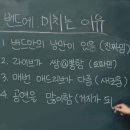 밴드에 미치는 이유
1 밴드만의 낭만이 있음 (진짜임)
2 라이브가 쌈@뽕함 (도파민)
3 매번 애드리브가 다름 (새로움)
4 공연을 많이함 (거지가 되